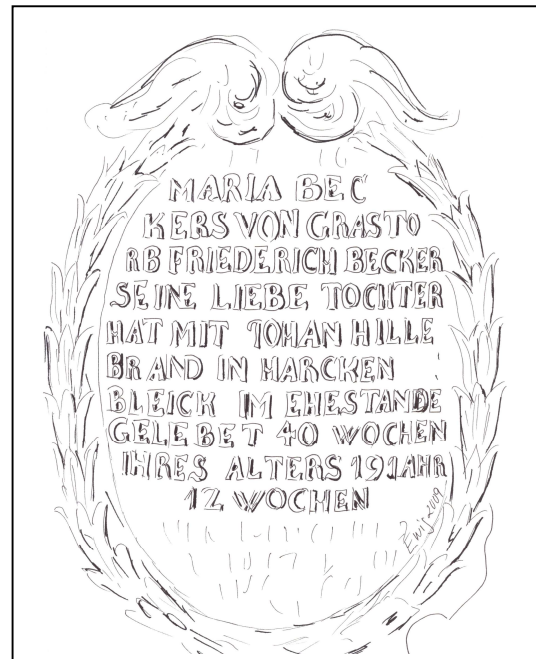 MARIA BEC
KERS VON GRASTO
RB FRIEDERICH BECKER
SEINE LIEBE TOCHTER
HAT MIT IOHAN HILLE
BRAND IN MARCKEN
BLEICK IM EHESTANDE
GELEBET 40 WOCHEN
IHRES ALTERS 19 IAHR
12 WOCHEN
2009